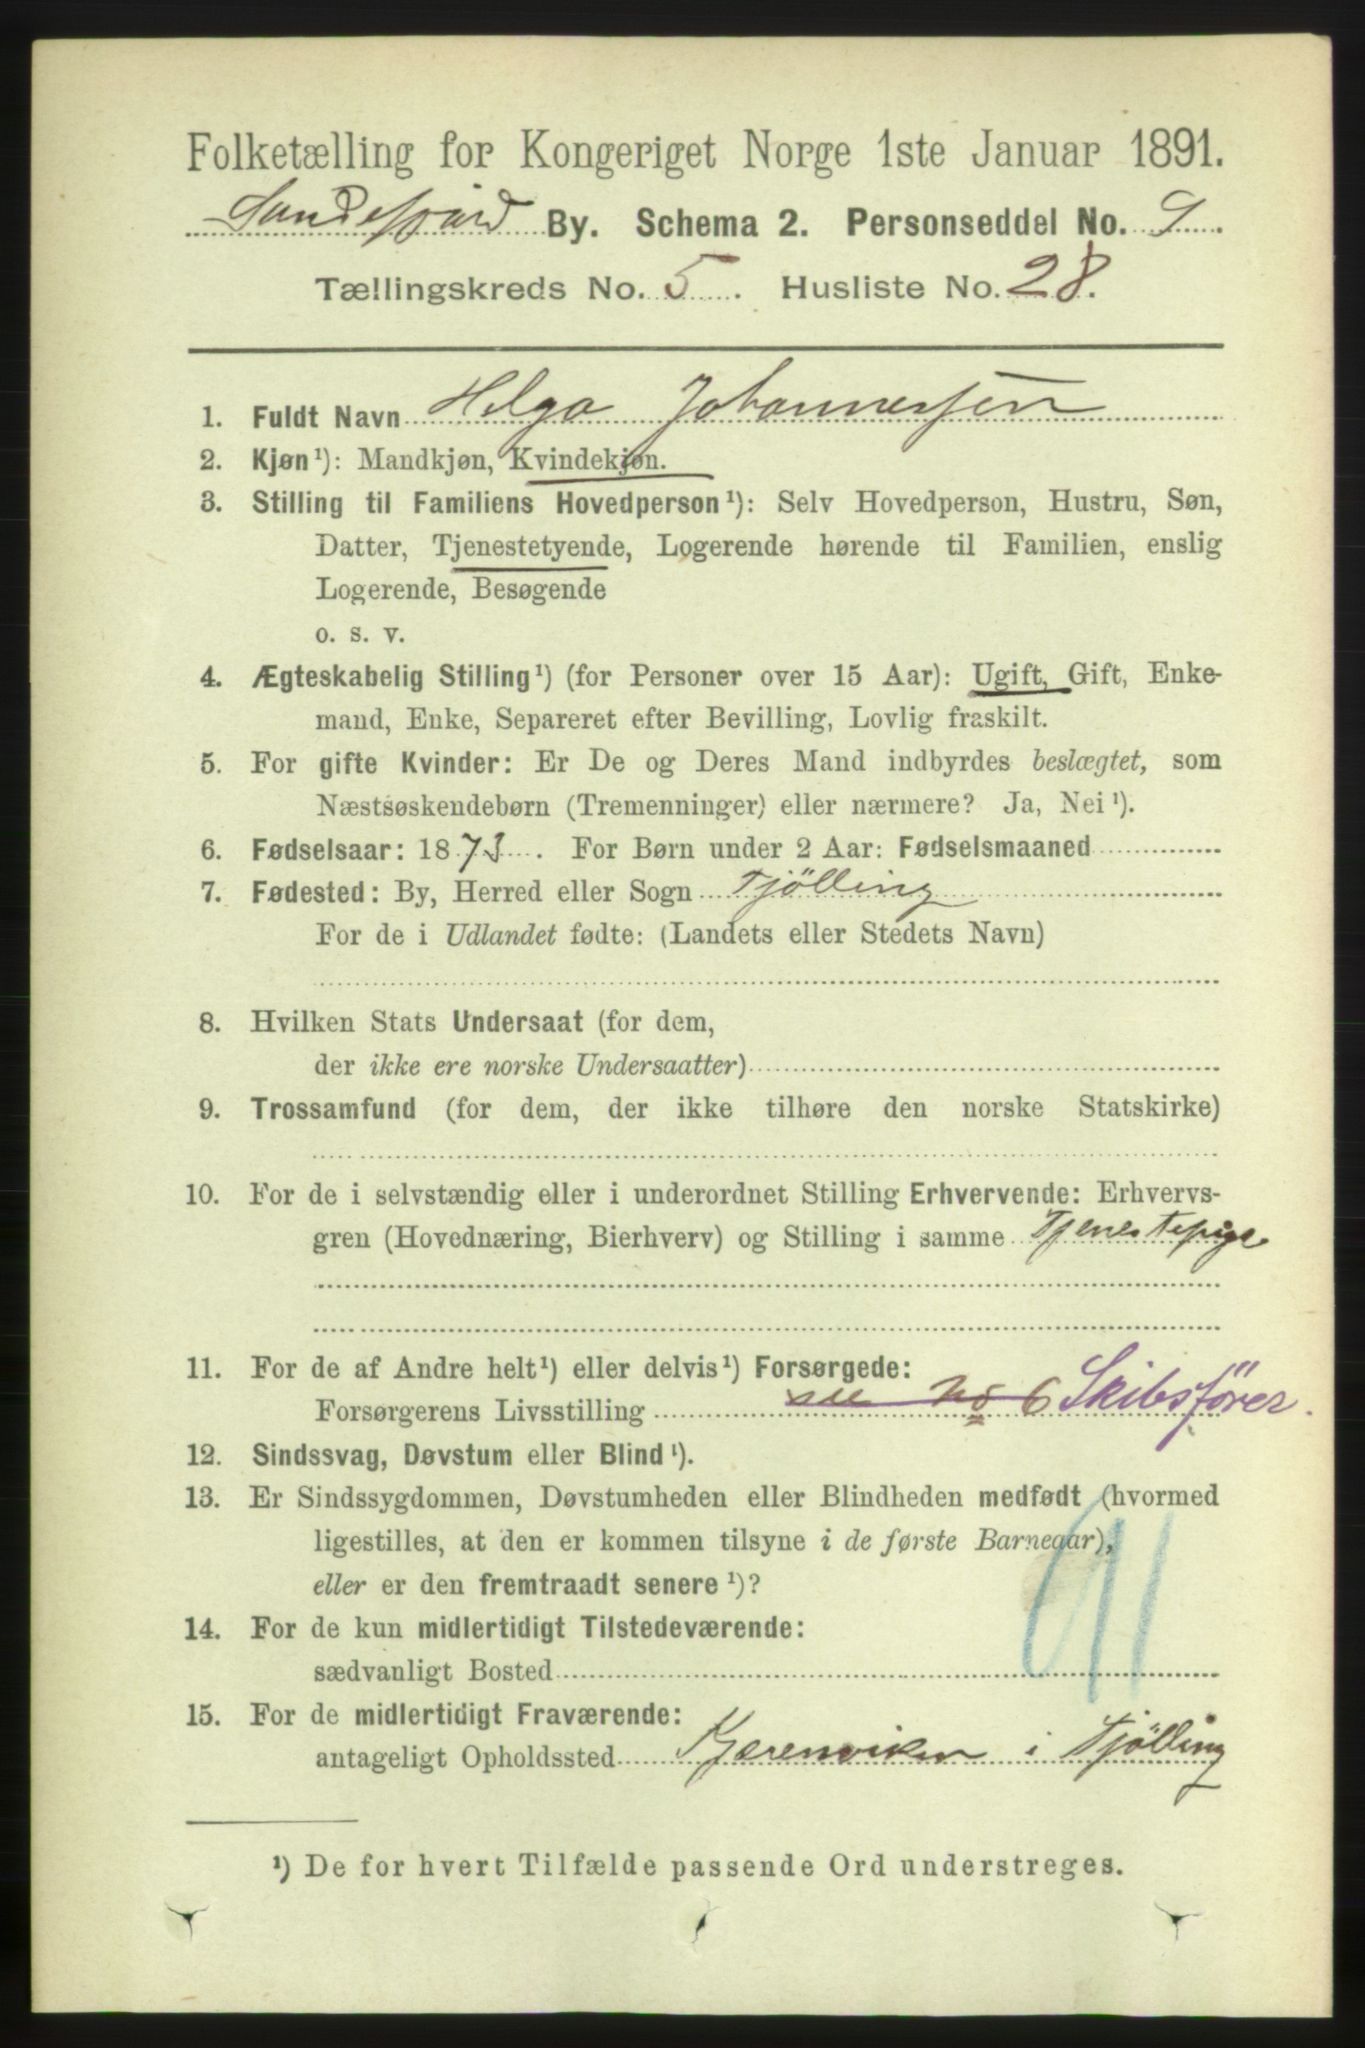 Folketælling for Kongeriget Norge 1ste Januar 1891.
Sandefjord By. Schema 2. Personseddel No. 9
Tællingskreds No. 5. Husliste No. 28.
1. Fuldt Navn Helga Johannessen
2. Kjøn¹): Mandkjøn, Kvindekjøn.
3. Stilling til Familiens Hovedperson¹): Selv Hovedperson, Hustru, Søn,
Datter, Tjenestetyende, Logerende hørende til Familien, enslig
Logerende, Besøgende
o. s. v.
4. Ægteskabelig Stilling¹) (for Personer over 15 Aar): Ugift, Gift, Enke-
mand, Enke, Separeret efter Bevilling, Lovlig fraskilt.
5. For gifte Kvinder: Er De og Deres Mand indbyrdes beslægtet, som
Næstsøskendebørn (Tremenninger) eller nærmere? Ja, Nei¹).
6. Fødselsaar: 1873. For Børn under 2 Aar: Fødselsmaaned
7. Fødested: By, Herred eller Sogn Tjölling
For de i Udlandet fødte: (Landets eller Stedets Navn)
8. Hvilken Stats Undersaat (for dem,
der ikke ere norske Undersaatter)
9. Trossamfund (for dem, der ikke tilhøre den norske Statskirke)
10. For de i selvstændig eller i underordnet Stilling Erhvervende: Erhvervs-
gren (Hovednæring, Bierhverv) og Stilling i samme Tjenestepige
11. For de af Andre helt¹) eller delvis¹) Forsørgede:
Forsørgerens Livsstilling see No 6 Skibsfører.
12. Sindssvag, Døvstum eller Blind¹).
13. Er Sindssygdommen, Døvstumheden eller Blindheden medfødt (hvormed
ligestilles, at den er kommen tilsyne i de første Barneaar),
eller er den fremtraadt senere¹)?
91
14. For de kun midlertidigt Tilstedeværende:
sædvanligt Bosted
15. For de midlertidigt Fraværende:
antageligt Opholdssted Kjærenviken i Tjölling
¹) De for hvert Tilfælde passende Ord understreges.